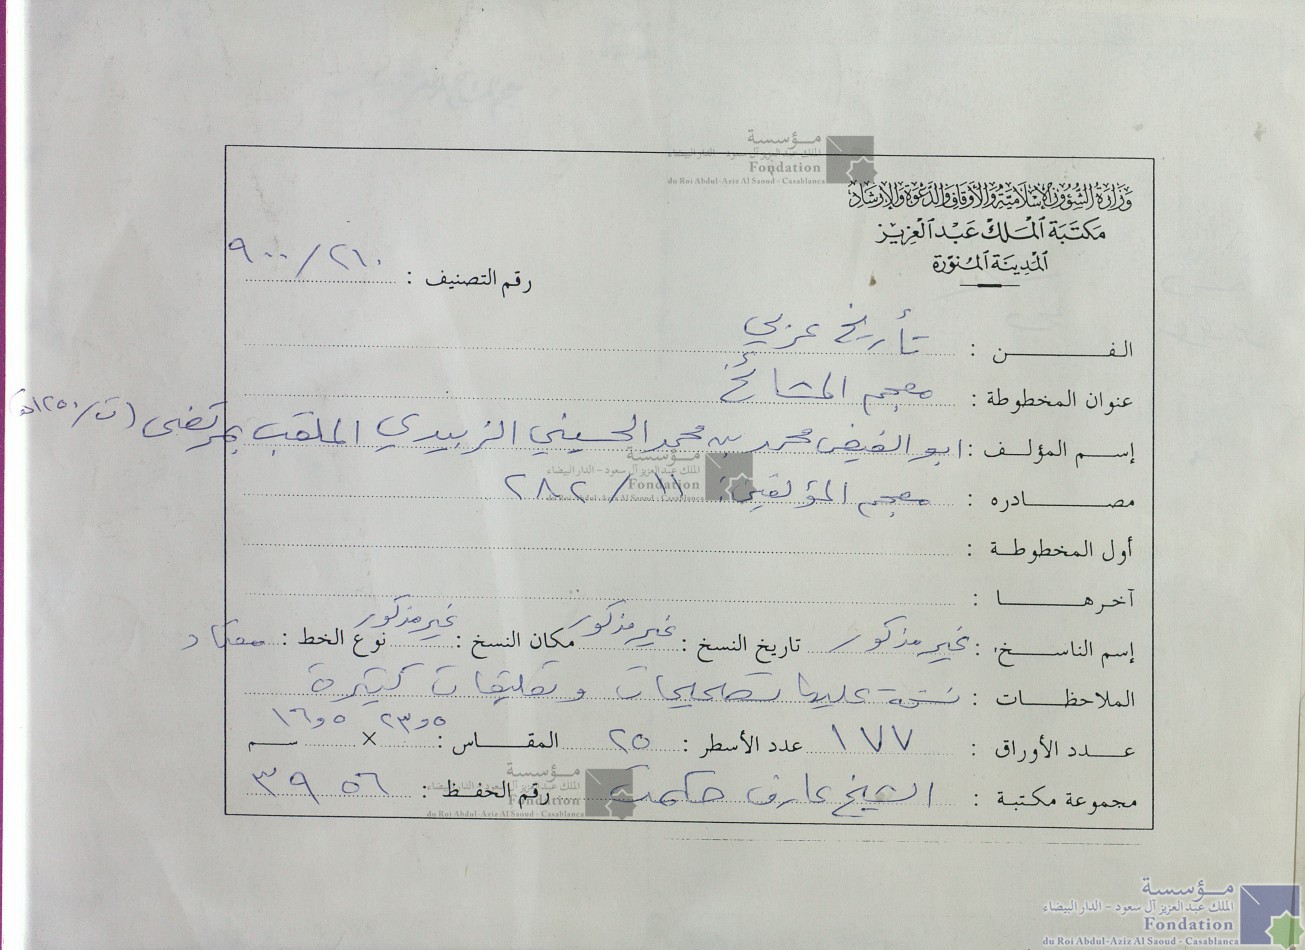 مؤسسة
الملك عبد العزيز آل سعود - الدار البيضاء
Fondation
du Roi Abdul-Aziz Al Saoud - Casablanca
وزارة الشؤون الإسلامية والأوقاف والدعوة والإرشاد
مكتبة الملك عبد العزيز
المدينة المنورة
رقم التصنيف : ٢٦٠/٩٠٠
الفـن : تأريخ عربي
عنوان المخطوطة : معجم المشائخ
إسم المؤلف : ابو الفيض محمد بن محمد الحسيني الزبيدي الملقب بمرتضى (ت/١٢٥٠هـ)
مصادره : معجم المؤلفين: ١١/٢٨٢
أول المخطوطة :
آخرها :
إسم الناسخ : غير مذكور تاريخ النسخ : غير مذكور مكان النسخ : غير مذكور نوع الخط : معتاد
الملاحظات : نسخة عليها تصحيحات وتعليقات كثيرة
عدد الأوراق : ١٧٧ عدد الأسطر : ٢٥ المقاس : ٢٣٫٥ × ١٦٫٥ سم
مجموعة مكتبة : الشيخ عارف حكمت رقم الحفظ : ٣٩٥٦
مؤسسة
الملك عبد العزيز آل سعود - الدار البيضاء
Fondation
du Roi Abdul-Aziz Al Saoud - Casablanca